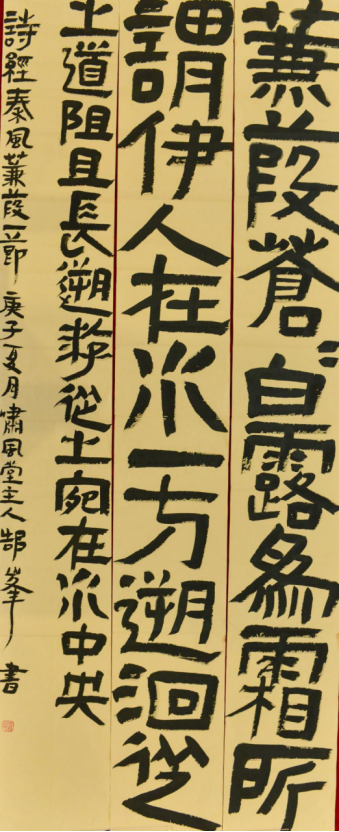 蒹葭蒼〻白露為霜所
謂伊人在水一方遡洄從
之道阻且長遡游從之宛在水中央
詩經秦風蒹葭一節 庚子夏月嘯風堂主人郜峯書